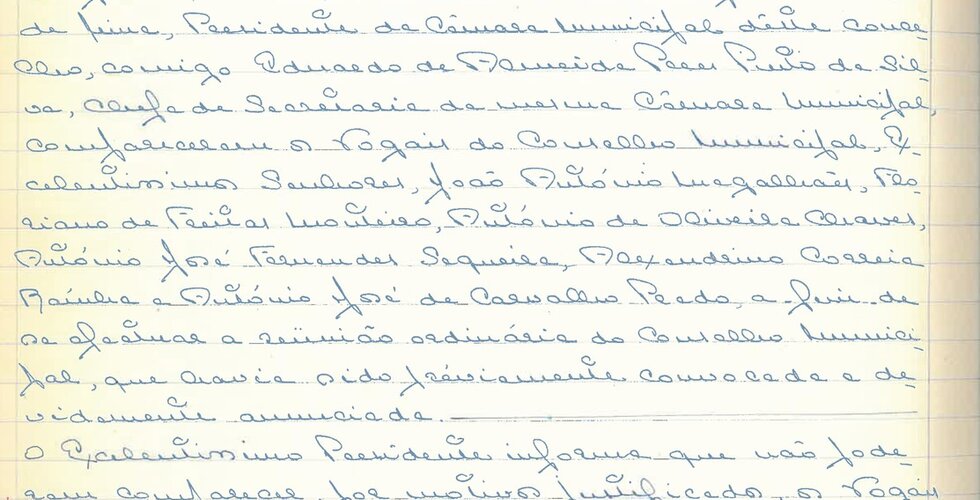 de Lima, Presidente da Câmara Municipal dêste conce-
lho, comigo Eduardo de Almeida Peres Pinto da Sil-
va, Chefe da Secretaria da mesma Câmara Municipal,
compareceram os Vogais do Conselho Municipal, Ex-
celentissimos Senhores, João António Magalhães, Flo-
riano de Freitas Monteiro, António de Oliveira Chaves,
António José Fernandes Sequeira, Alexandrino Correia
Raínha e António José de Carvalho Prado, a-fim-de
se efectuar a reünião ordinária do Conselho Munici-
pal, que havia sido préviamente convocada e de-
vidamente anunciada.
O Excelentissimo Presidente informa que não pode-
ram comparecer por motivos justificados, os Vogais